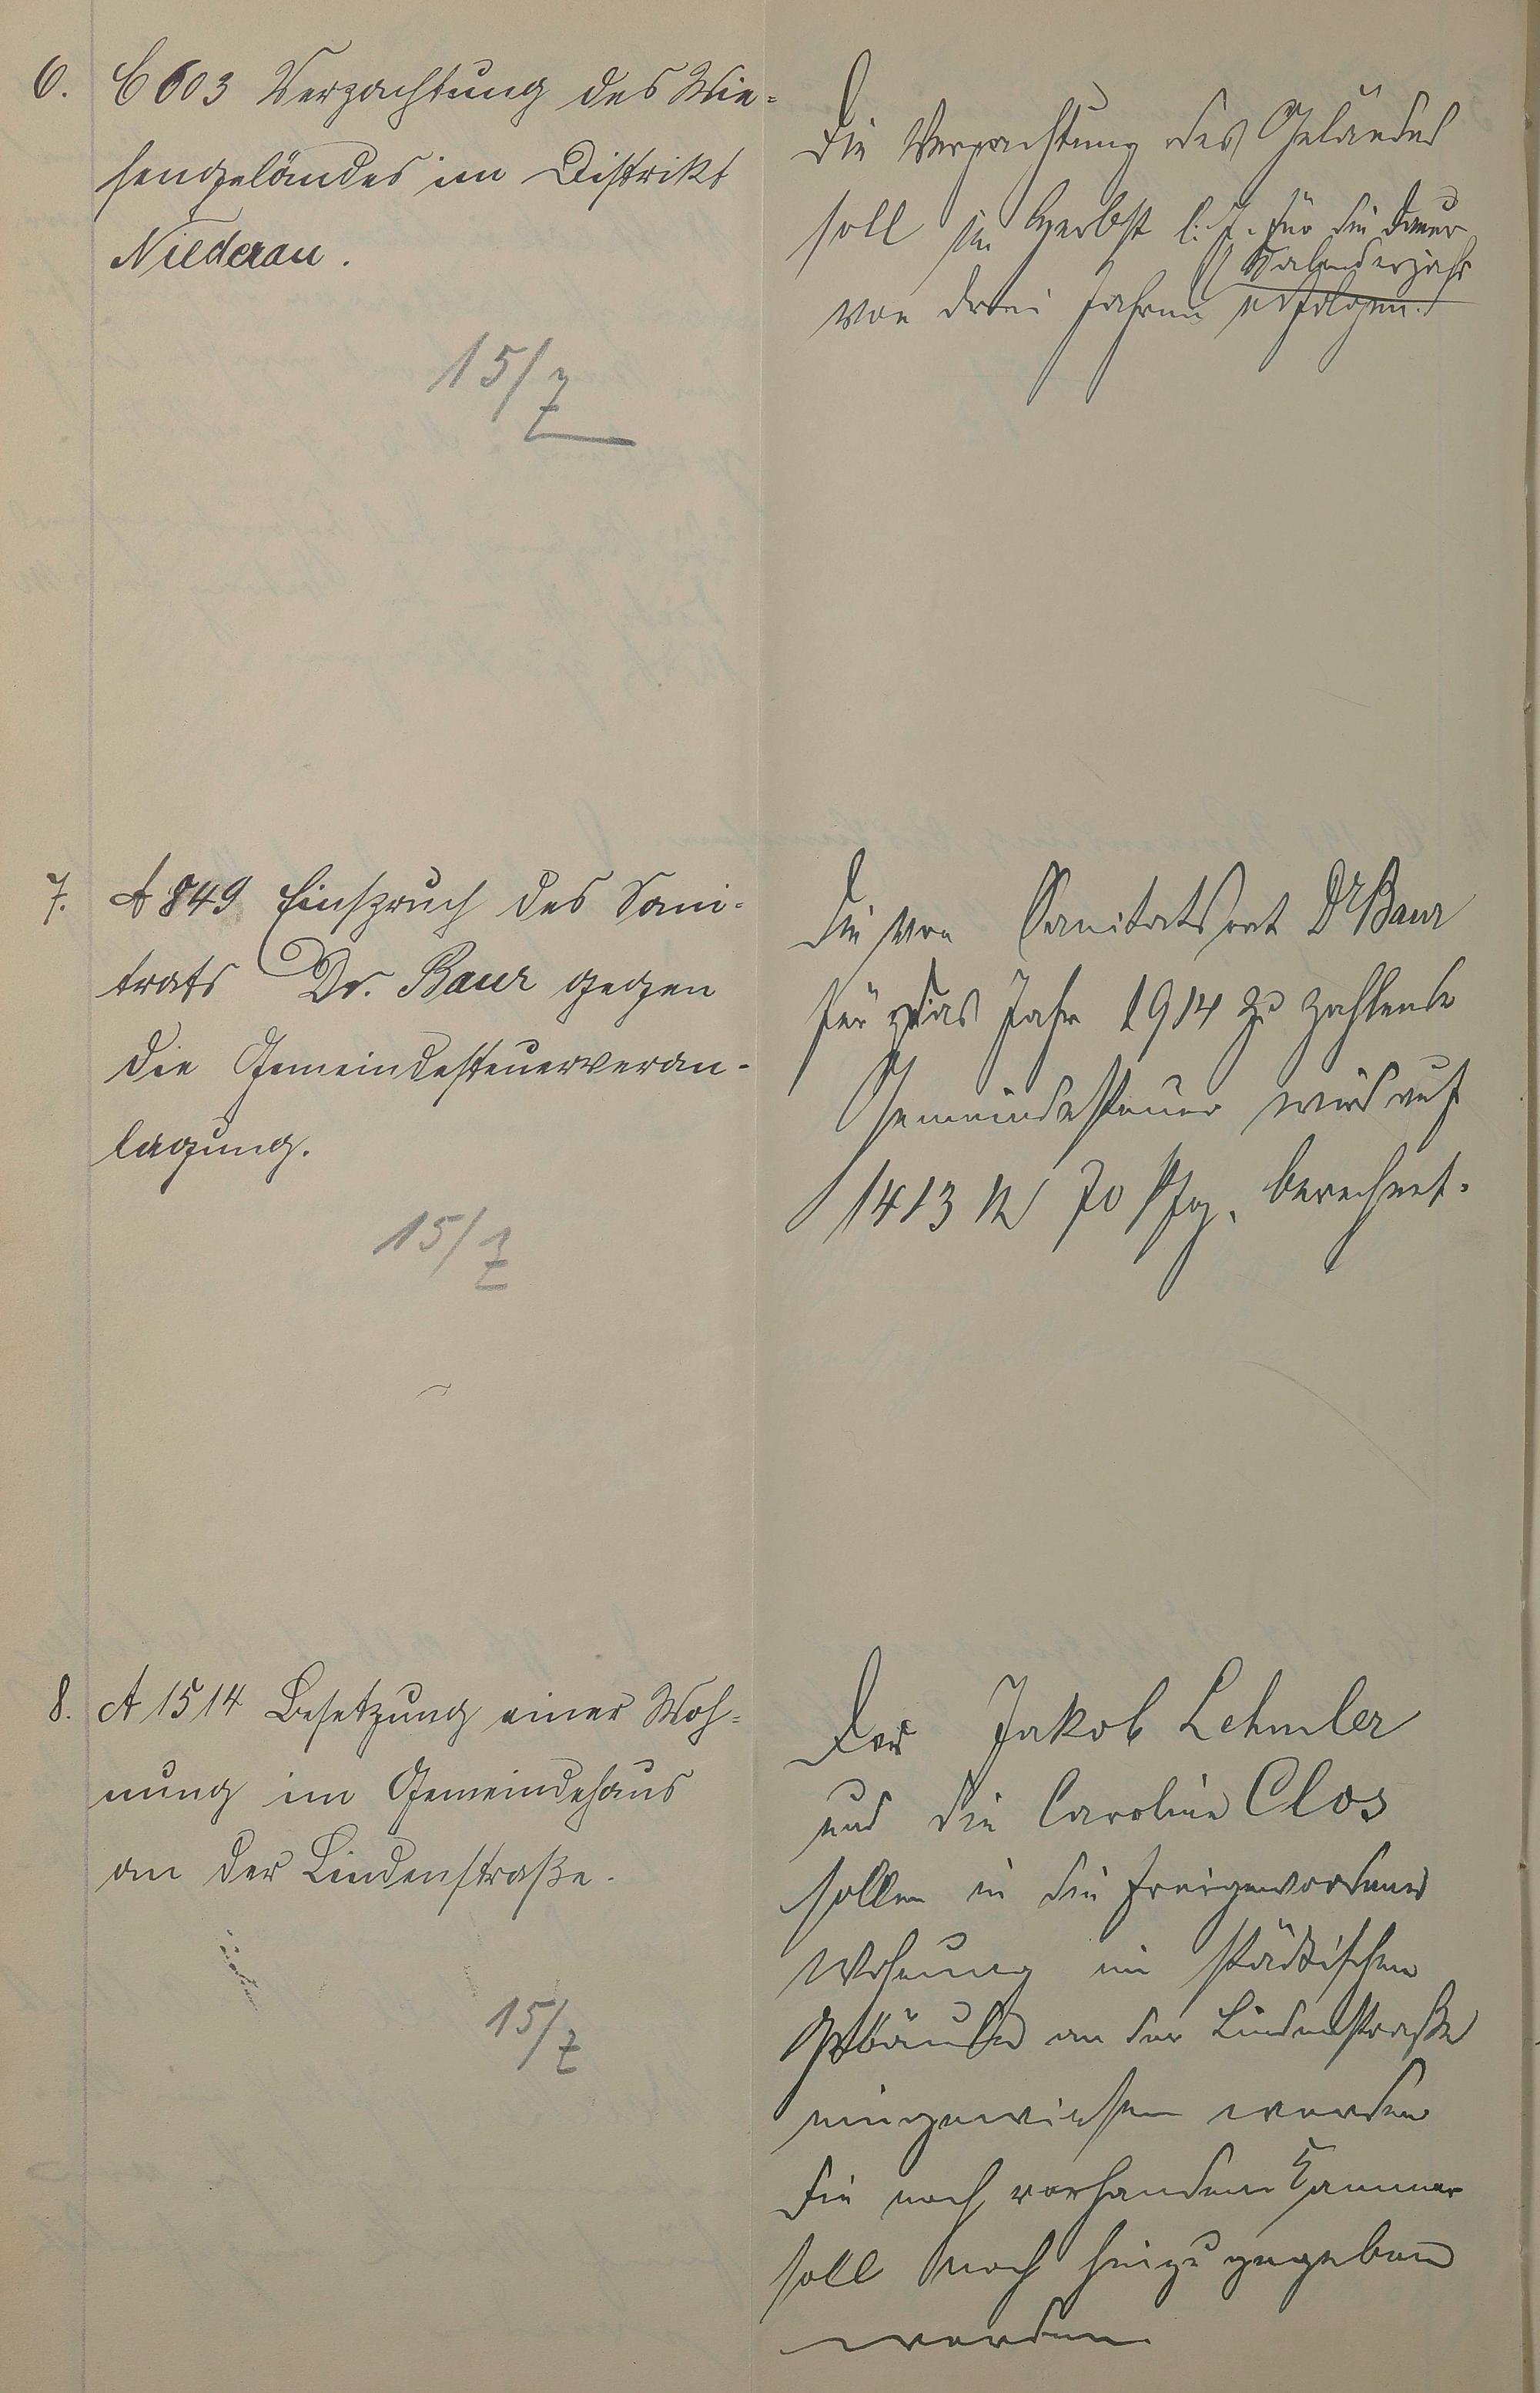 6. C 603 Verpachtung des Wie-
sengeländes im Distrikt
Niederau.
15/7
Die Verpachtung des Geländes
soll im Herbst l. J. für die Dauer
von drei Jahren (Kalenderjahr)
erfolgen.
7. A 849 Einspruch des Sani-
trats Dr. Baur gegen
die Gemeindesteuerveran-
lagung.
15/7
Die von Sanitätsrat Dr Baur
für das Jahr 1914 zu zahlende
Gemeindesteuer wird auf
1413 M 70 Pfg. berechnet.
8. A 1514 Besetzung einer Woh-
nung im Gemeindehaus
an der Lindenstraße.
15/7
Der Jakob Lehmler
und die Caroline Clos
sollen in die freigewordene
Wohnung im städtischen
Gebäude an der Lindenstraße
eingewiesen werden
Die noch vorhandene Kammer
soll noch hinzugegeben
werden.